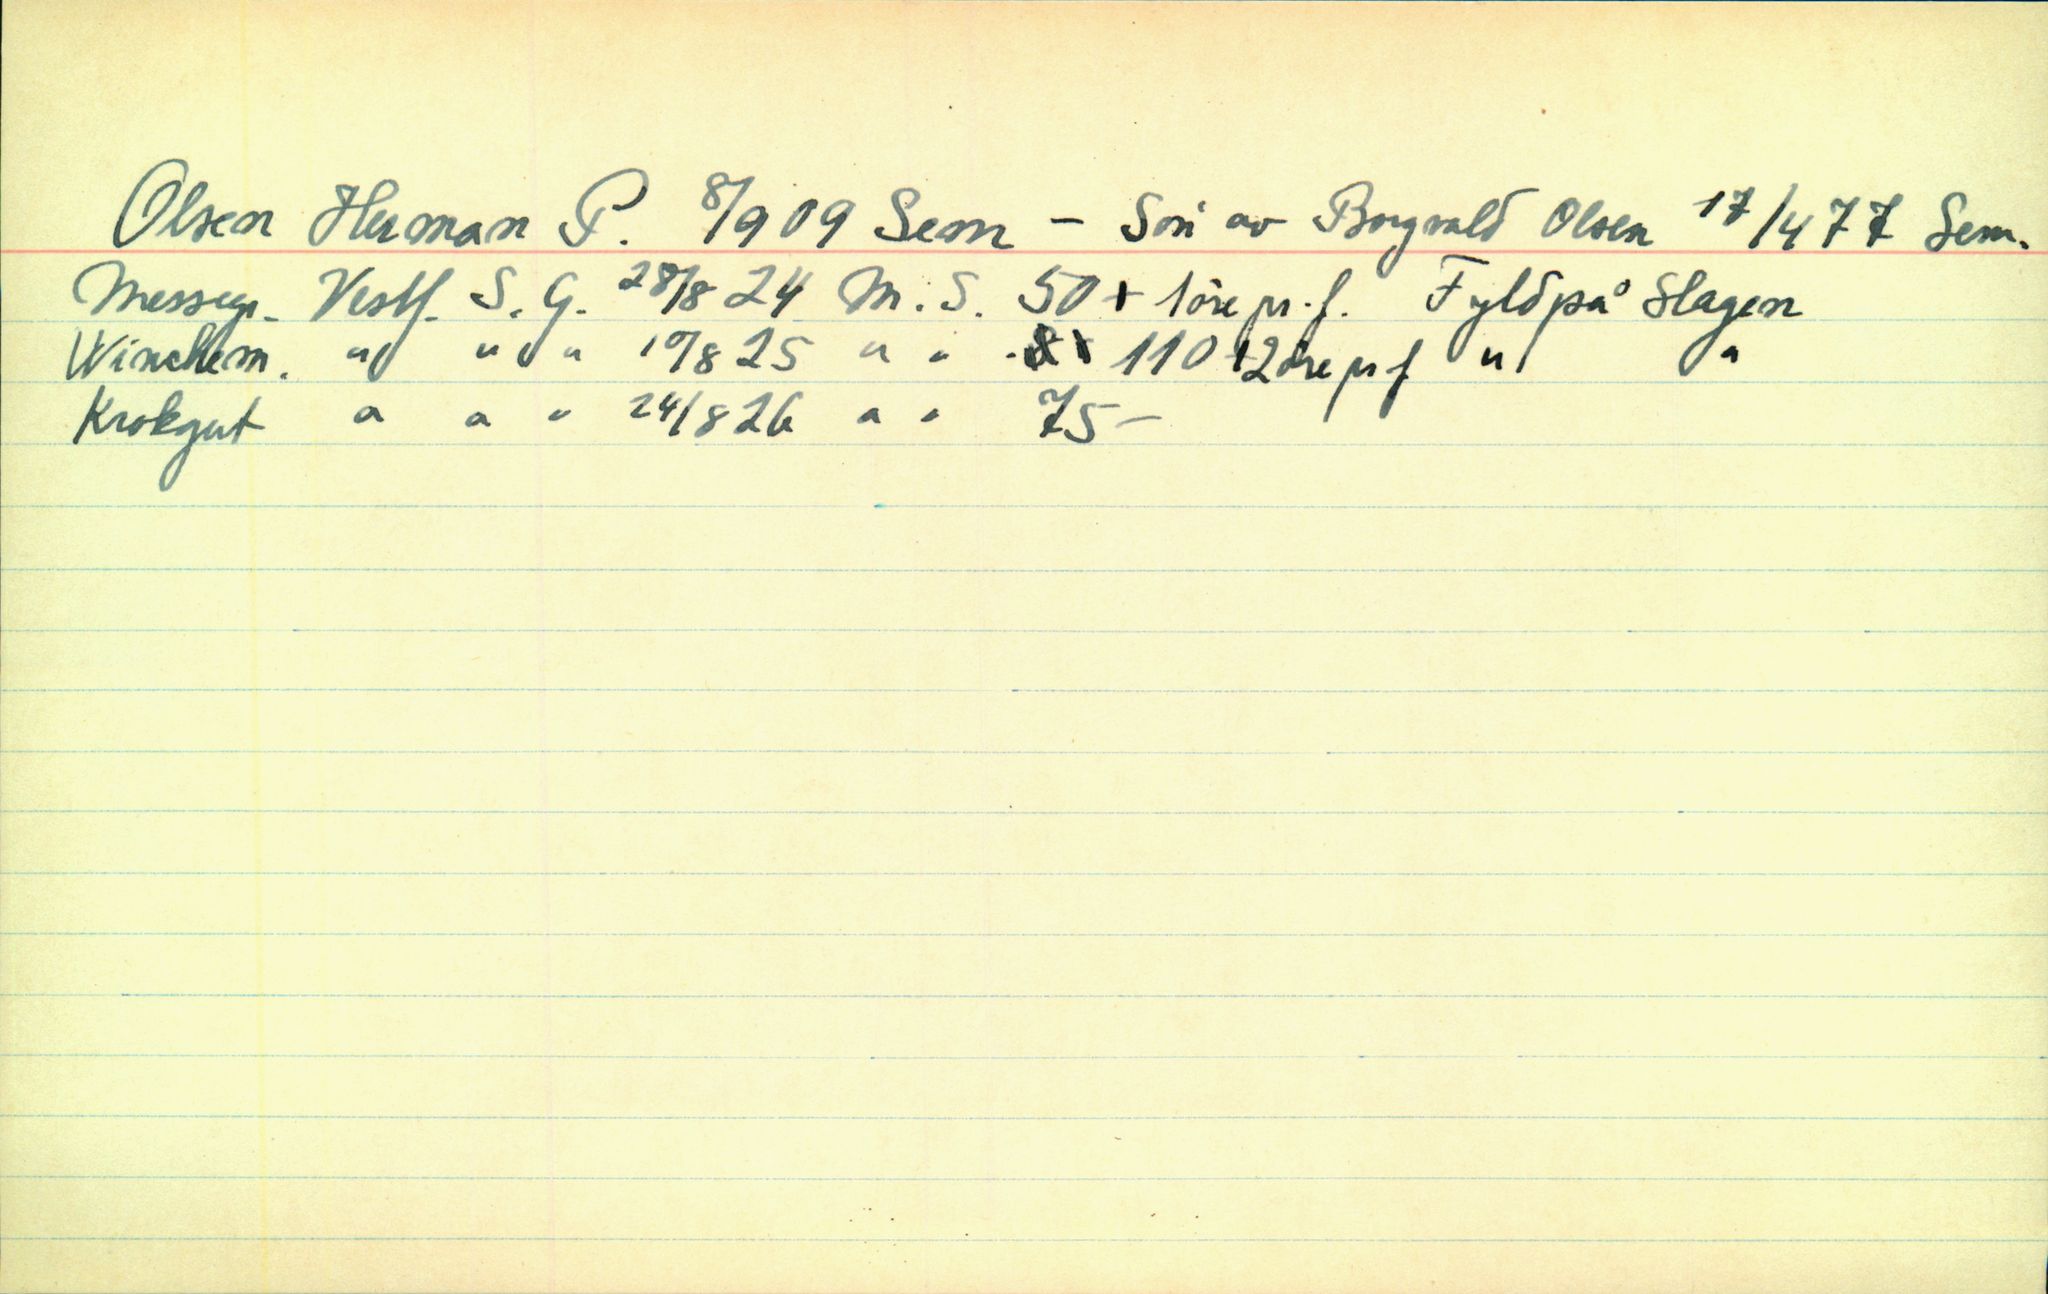 Olsen Herman P. 8/9 09 Sem - Sön av Borgvald Olsen 17/4 77 Sem.
Messegt. Vestf. S. G. 28/8 24 M. S. 50 + 1 öre pr. f. Fyldpå Slagen
Winchem. " " " 10/8 25 " " 110 + 2 öre pr f " "
Krokgut " " " 24/8 26 " " 75 -